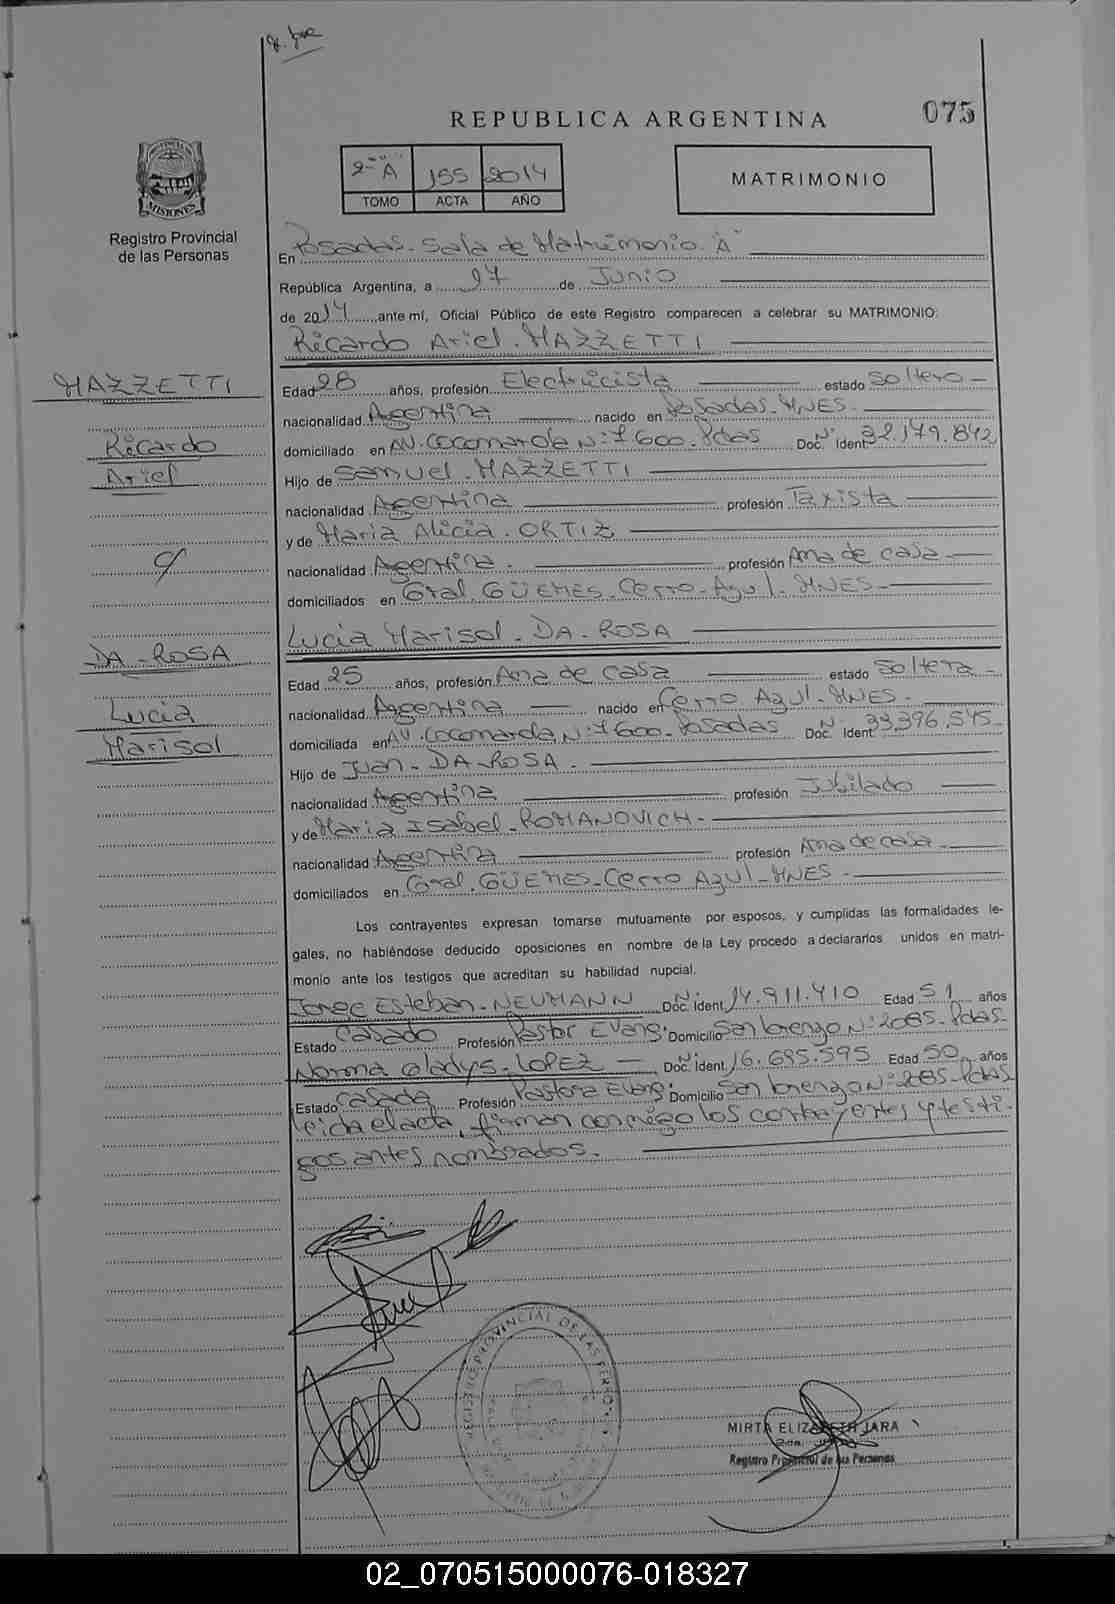 REPUBLICA ARGENTINA
075
2º "A" 155 2014
TOMO ACTA AÑO
MATRIMONIO
MISIONES
Registro Provincial
de las Personas
En Posadas-Sala de Matrimonio "A"
República Argentina, a 27 de Junio
de 2014 ante mí, Oficial Público de este Registro comparecen a celebrar su MATRIMONIO:
Ricardo Ariel. MAZZETTI
MAZZETTI
Ricardo
Ariel
c/
DA-ROSA
Lucia
Marisol
Edad 28 años, profesión Electricista estado Soltero-
nacionalidad Argentina nacido en Posadas-MNES-
domiciliado en AV. Cocomarola Nº: 7600. Pdas Doc. Nº Ident 32.179.842
Hijo de Samuel. MAZZETTI
nacionalidad Argentina profesión Taxista
y de Maria Alicia. ORTIZ
nacionalidad Argentina. profesión Ama de casa-
domiciliados en Gral. GÜEMES-Cerro-Azul-MNES-
Lucia Marisol-DA-ROSA
Edad 25 años, profesión Ama de casa estado Soltera-
nacionalidad Argentina nacido en Cerro Azul-MNES-
domiciliada en AV. Cocomarola Nº: 7600-Posadas Doc. Nº Ident 33.396.545-
Hijo de Juan-DA-ROSA.
nacionalidad Argentina profesión Jubilado
y de Maria Isabel-ROMANOVICH-
nacionalidad Argentina profesión Ama de casa-
domiciliados en Gral. GÜEMES-Cerro Azul-MNES-
Los contrayentes expresan tomarse mutuamente por esposos, y cumplidas las formalidades le-
gales, no habiéndose deducido oposiciones en nombre de la Ley procedo a declararlos unidos en matri-
monio ante los testigos que acreditan su habilidad nupcial.
Jorge Esteban-NEUMANN Doc. Nº Ident. 14.911.410 Edad 51 años
Estado Casado Profesión Pastor Evang. Domicilio San Lorenzo Nº: 2085-Pdas-
Norma Gladys-LOPEZ- Doc. Nº Ident. 16.695.595 Edad 50 años
Estado Casada Profesión Pastora Evang. Domicilio San Lorenzo Nº: 2085-Pdas
leida el acta, firman conmigo los contrayentes y testi-
gos antes nombrados.
REGISTRO PROVINCIAL DE LAS PERSONAS
MIRTA ELIZABETH JARA
Registro Provincial de las Personas
02_070515000076-018327